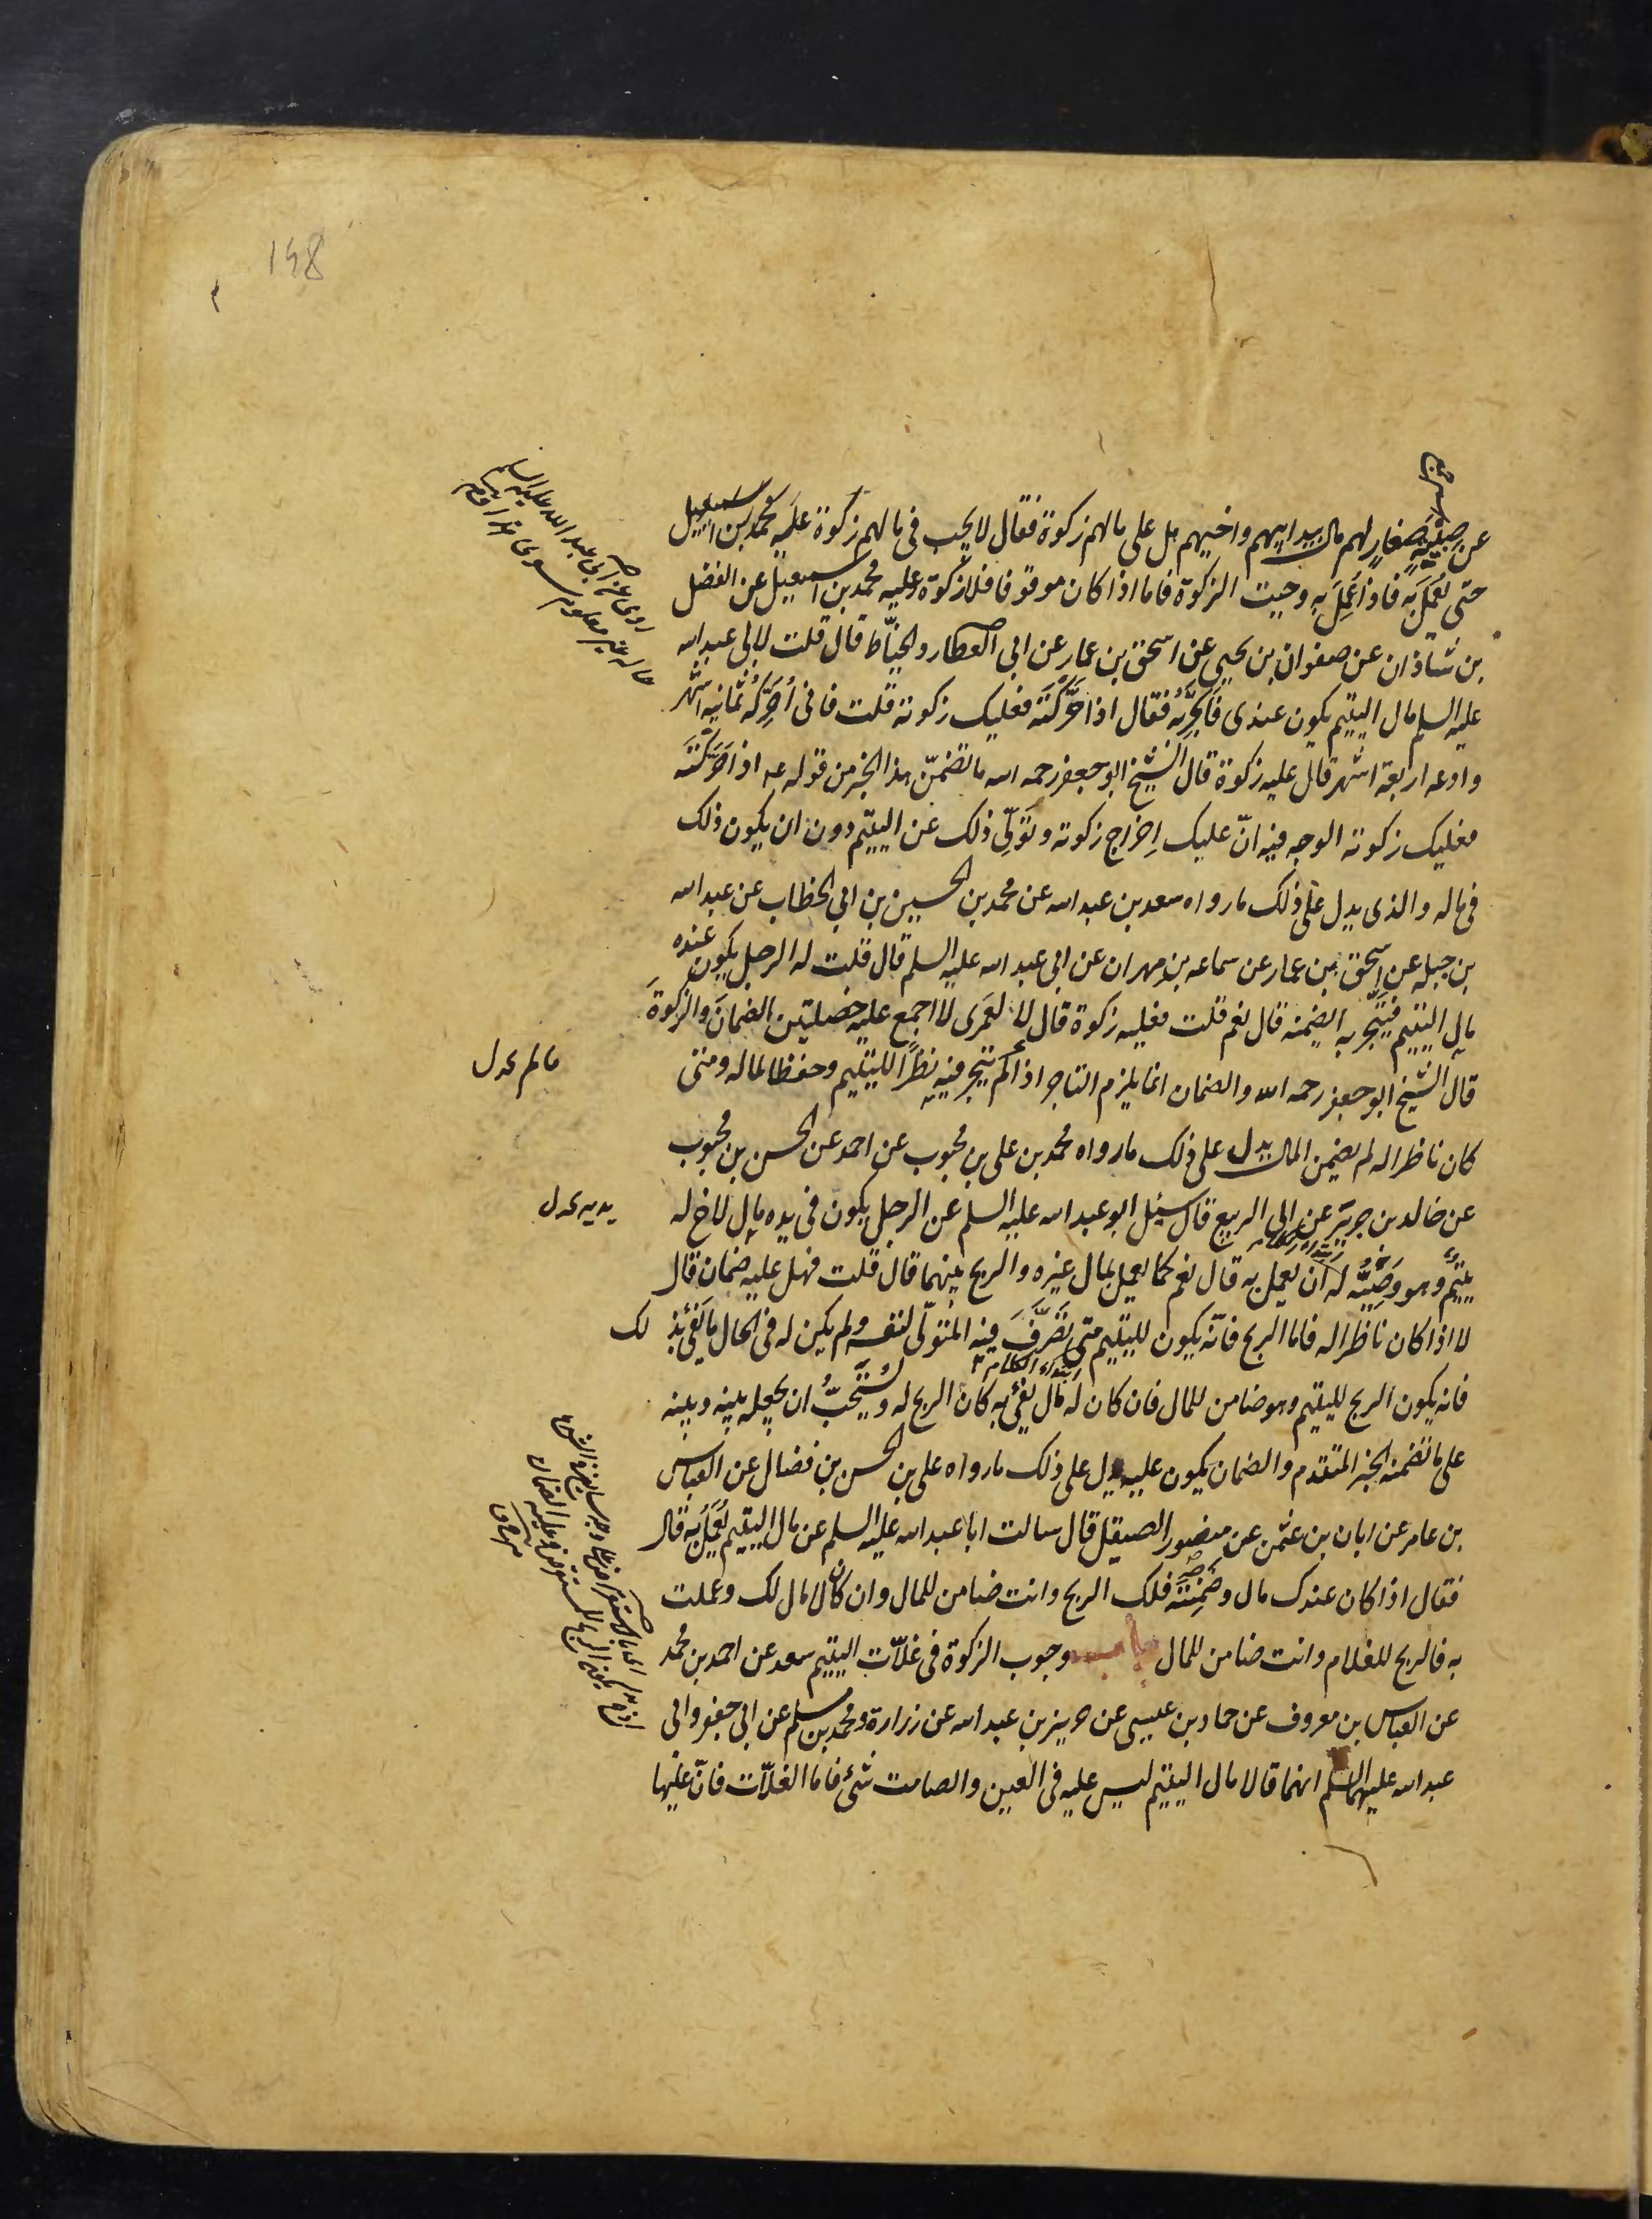 148
عن صبية صغار لهم مال بيد ابيهم واخيهم هل على مالهم زكوة فقال لا يجب فى مالهم زكوة عليه محمد بن اسمعيل
حتى يُعمَلَ به فاذا عُمِلَ به وجبت الزكوة فاما اذا كان موقوفا فلا زكوة وعليه محمد بن اسمعيل عن الفضل
بن شاذان عن صفوان بن يحيى عن اسحق بن عمار عن ابى العطارد الخيّاط قال قلت لابى عبد الله
عليه السلم مال اليتيم يكون عندى فاتّجر به فقال اذا حَرَّكتَه فعليك زكوته قلت فانى اُحَرِّكُه ثمانيه اشهر
وادعه اربعة اشهر قال عليه زكوة قال الشيخ ابو جعفر رحمه الله ما تضمّن هذا الخبر من قوله عـ اذا حَرَّكتَه
فعليك زكوته الوجه فيه انّ عليك اِخراج زكوته وتَولّى ذلك عن اليتيم دون ان يكون ذلك
فى ماله والذى يدل على ذلك ما رواه سعد بن عبد الله عن محمد بن الحسين بن ابى الخطاب عن عبد الله
بن جبله عن اسحق بن عمار عن سماعه بن مهران عن ابى عبد الله عليه السلم قال قلت له الرجل يكون عنده
مال اليتيم فيتّجر به ايضمنه قال نعم قلت فعليه زكوة قال لا لعَمرى لا اجمع عليه خصلتين الضمانَ والزكوةَ
قال الشيخ ابو جعفر رحمه الله والضمان انما يلزم التاجر اذا لم يتّجر فيه نظرًا لليتيم وحفظا لماله ومتى
كان ناظرا له لم يضمن المال يدل على ذلك ما رواه محمد بن على بن محبوب عن احمد عن الحسن بن محبوب
عن خالد بن جرير عن ابى الربيع قال سئل ابو عبد الله عليه السلم عن الرجل يكون فى يده مال لاخ له
يتيم وهو وصيّه له ان يعمل به قال نعم كما يعمل بمال غيره والربح بينهما قال قلت فهل عليه ضمان قال
لا اذا كان ناظرا له فاما الربح فانّه يكون لليتيم متى تصَرَّفَ فيه المتولّى لنفسه ولم يكن له فى الحال ما يَفى بذلك
فانه يكون الربح لليتيم وهو ضامن للمال فان كان له مال يفى به كان الربح له ويُستَحَبُّ ان يجعله بينه وبينه
على ما تضمنه الخبر المتقدم والضمان يكون عليه يدل على ذلك ما رواه على بن الحسن بن فضال عن العباس
بن عامر عن ابان بن عثمن عن منصور الصيقل قال سالت ابا عبد الله عليه السلم عن مال اليتيم يُعمَلُ به قال
فقال اذا كان عندك مال وضَمِنتَه فلك الربح وانت ضامن للمال وان كان لا مال لك وعملت
به فالربح للغلام وانت ضامن للمال باب وجوب الزكوة فى غلّات اليتيم سعد عن احمد بن محمد
عن العباس بن معروف عن حماد بن عيسى عن حريز بن عبد الله عن زرارة ومحمد بن مسلم عن ابى جعفر وابى
عبد الله عليهما السلم انهما قالا مال اليتيم ليس عليه فى العين والصامت شئ فاما الغلّات فانّ عليها